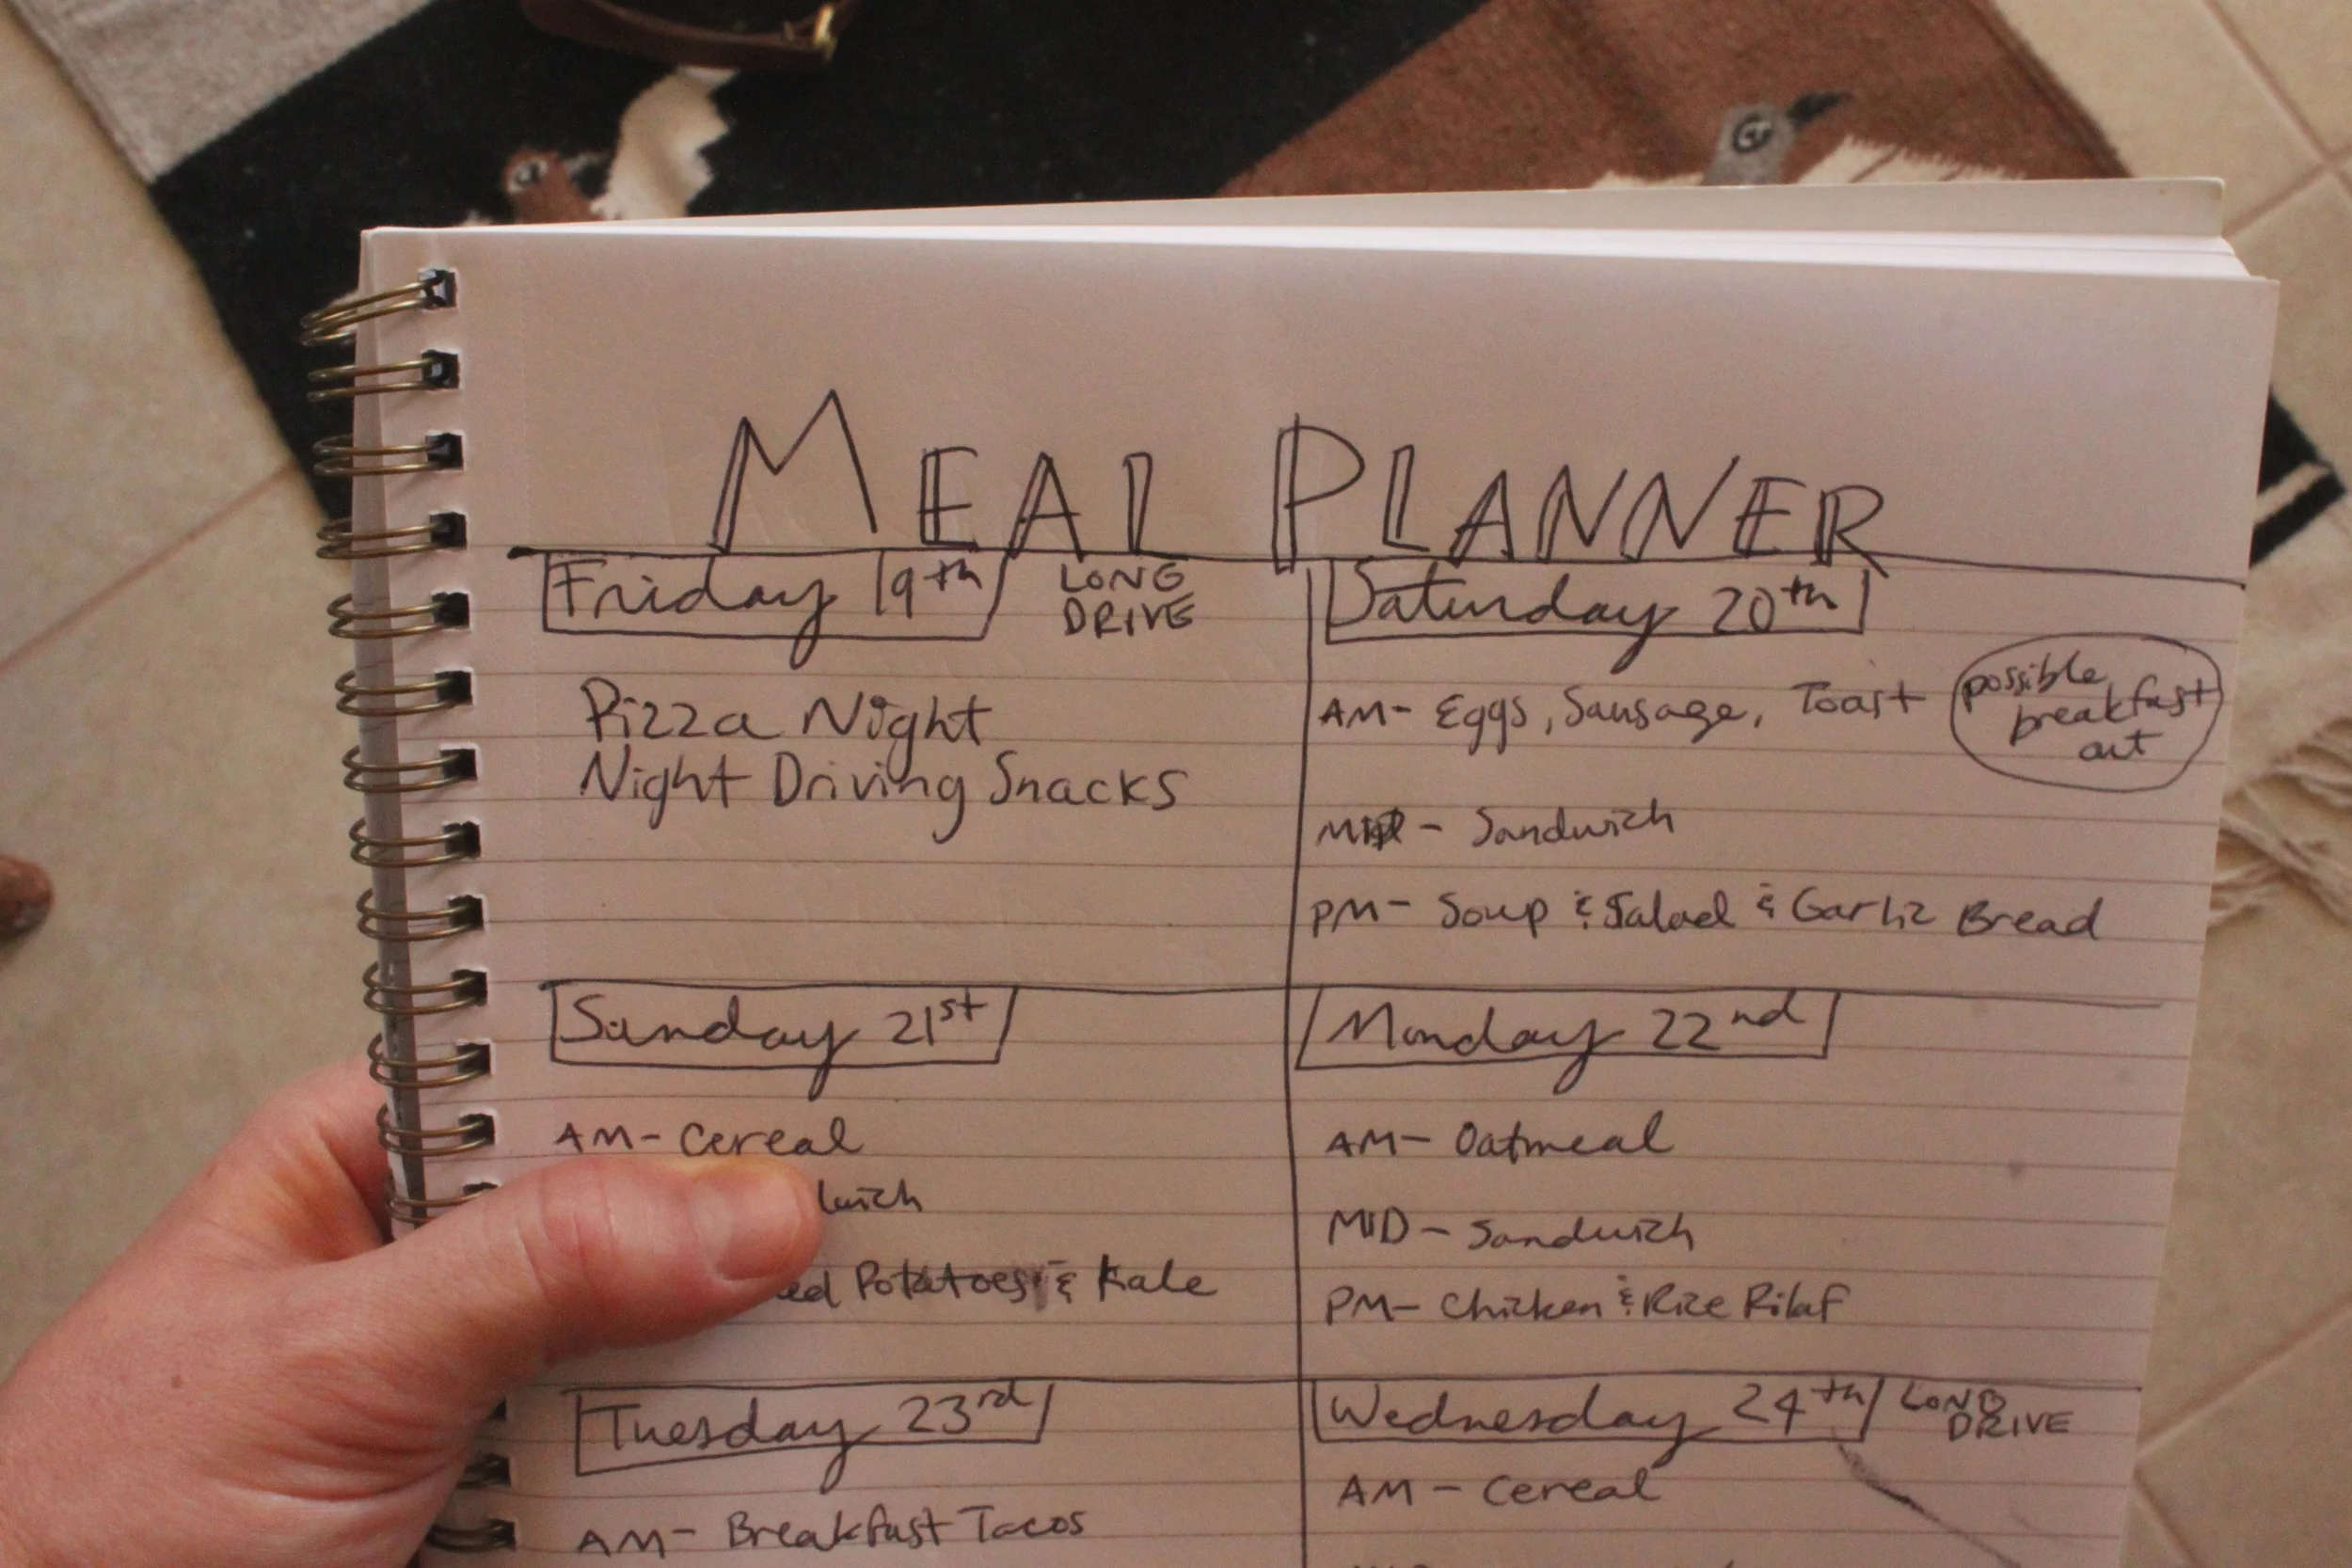 MEAL PLANNER
Friday 19th
LONG
DRIVE
Pizza Night
Night Driving Snacks
Saturday 20th
AM- Eggs, Sausage, Toast
possible
breakfast
out
MID - Sandwich
PM- Soup & Salad & Garlic Bread
Sunday 21st
AM- Cereal
wich
ed Potatoes & Kale
Monday 22nd
AM- Oatmeal
MID - Sandwich
PM- Chicken & Rice Pilaf
Tuesday 23rd
AM- Breakfast Tacos
Wednesday 24th
LONG
DRIVE
AM - Cereal